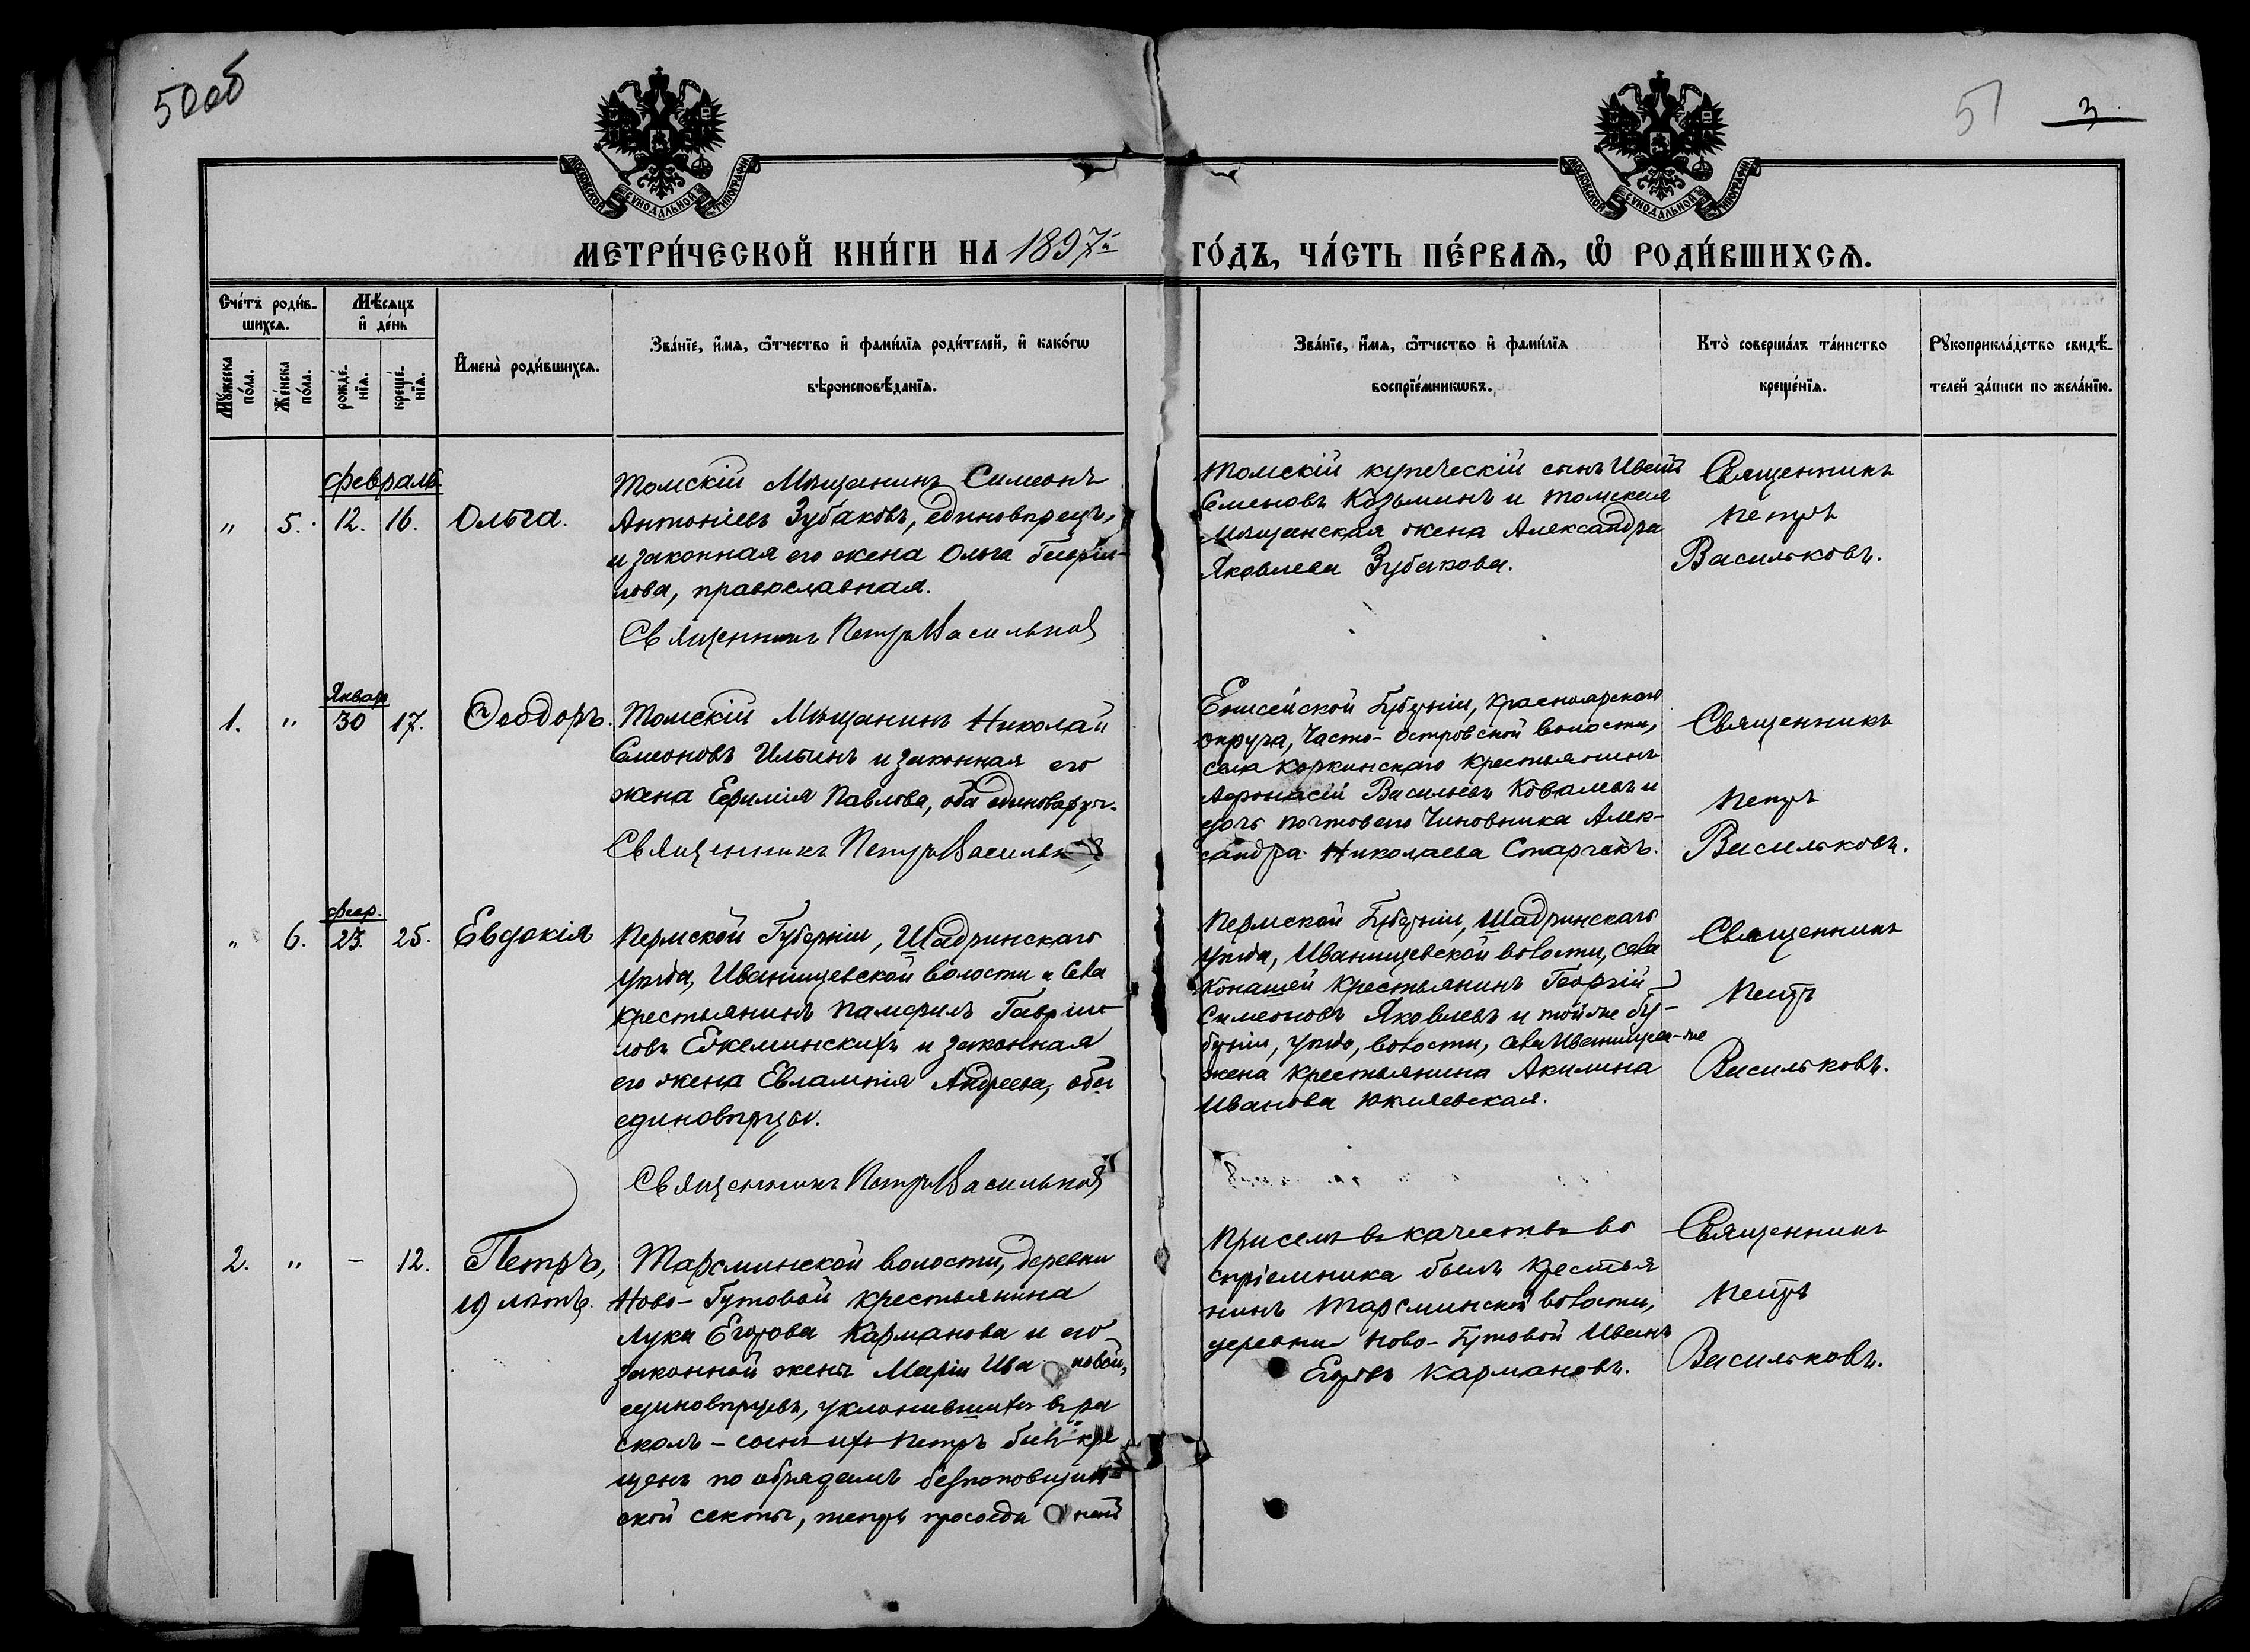 50об
51 3
МОСКОВСКОЙ СѴНОДАЛЬНОЙ ТИПОГРАФІИ
МОСКОВСКОЙ СѴНОДАЛЬНОЙ ТИПОГРАФІИ
МЕТРИ́ЧЕСКОЙ КНИ́ГИ НА 1897й ГО́ДЪ, ЧА́СТЬ ПЕ́РВАѦ, Ѡ҆ РОДИ́ВШИХСѦ.
Сче́тъ роди́в-
шихсѧ.
Мѣ́сяцъ
и҆ де́нь
Мꙋ́жеска по́ла.
Же́нска по́ла.
рожде́-
нїѧ.
креще́-
нїѧ.
И҆мена̀ роди́вшихсѧ.
Зва́нїе, и҆́мѧ, ѻ҆́тчество и҆ фами́лїѧ роди́телей, и҆ како́гѡ
вѣроисповѣ́данїѧ.
Зва́нїе, и҆́мѧ, ѻ҆́тчество и҆ фами́лїѧ
воспрїе́мникѡвъ.
Кто̀ соверша́лъ та́инство
креще́нїѧ.
Рꙋкоприкла́дство свидѣ́-
телей за́писи по жела́нїю.
Февраль
" 5. 12. 16. Ольга.
Томскій Мѣщанинъ Симеонъ
Антоніевъ Зубаковъ, единовѣрецъ,
и законная его жена Ольга Гаврии-
лова, православная.
Священникъ Петръ Васильков
Томскій купеческій сынъ Иванъ
Семеновъ Козьминъ и томская
мѣщанская жена Александра
Яковлева Зубакова.
Священникъ
Петръ
Васильковъ.
Январь
1. " 30 17. Ѳеодоръ.
Томскій Мѣщанинъ Николай
Симеоновъ Ильинъ и законная его
жена Евфимія Павлова, оба единоверцы.
Священникъ Петръ Васильков
Енисейской Губерніи, Красноярскаго
округа, Часто-островской волости,
села Коркинскаго крестьянинъ
Афонасій Васильевъ Ковалевъ и
дочь почтоваго Чиновника Алек-
сандра Николаева Старчакъ.
Священникъ
Петръ
Васильковъ.
Февр.
" 6. 23. 25. Евдокія
Пермской Губерніи, Шадринскаго
уѣзда, Иванищевской волости и села
крестьянинъ Памфилъ Гаврии-
ловъ и законная
его жена Евлампія Андреева, оба
единовѣрцы.
Священникъ Петръ Васильков
Пермской Губерніи, Шадринскаго
уѣзда, Иванищевской волости, села
крестьянинъ Георгій
Симеоновъ Яковлевъ и той же Гу-
берніи, уѣзда, волости, села
жена крестьянина Акилина
Иванова
Священникъ
Петръ
Васильковъ.
2. " – 12. Петръ,
19 лѣтъ.
Тарсминской волости, деревни
Ново-Гутовой крестьянина
Луки Егорова Карманова и его
законной жены Маріи Ивановой,
единовѣрцевъ, уклонившихся въ ра
сколъ – сынъ ихъ Петръ бывъ кре
щенъ по обрядамъ безпоповщин-
ской секты, теперь присоединенъ
При семъ въ качествѣ во
спріемника былъ крестья
нинъ Тарсминской волости,
деревни Ново-Гутовой Иванъ
Егоровъ Кармановъ.
Священникъ
Петръ
Васильковъ.